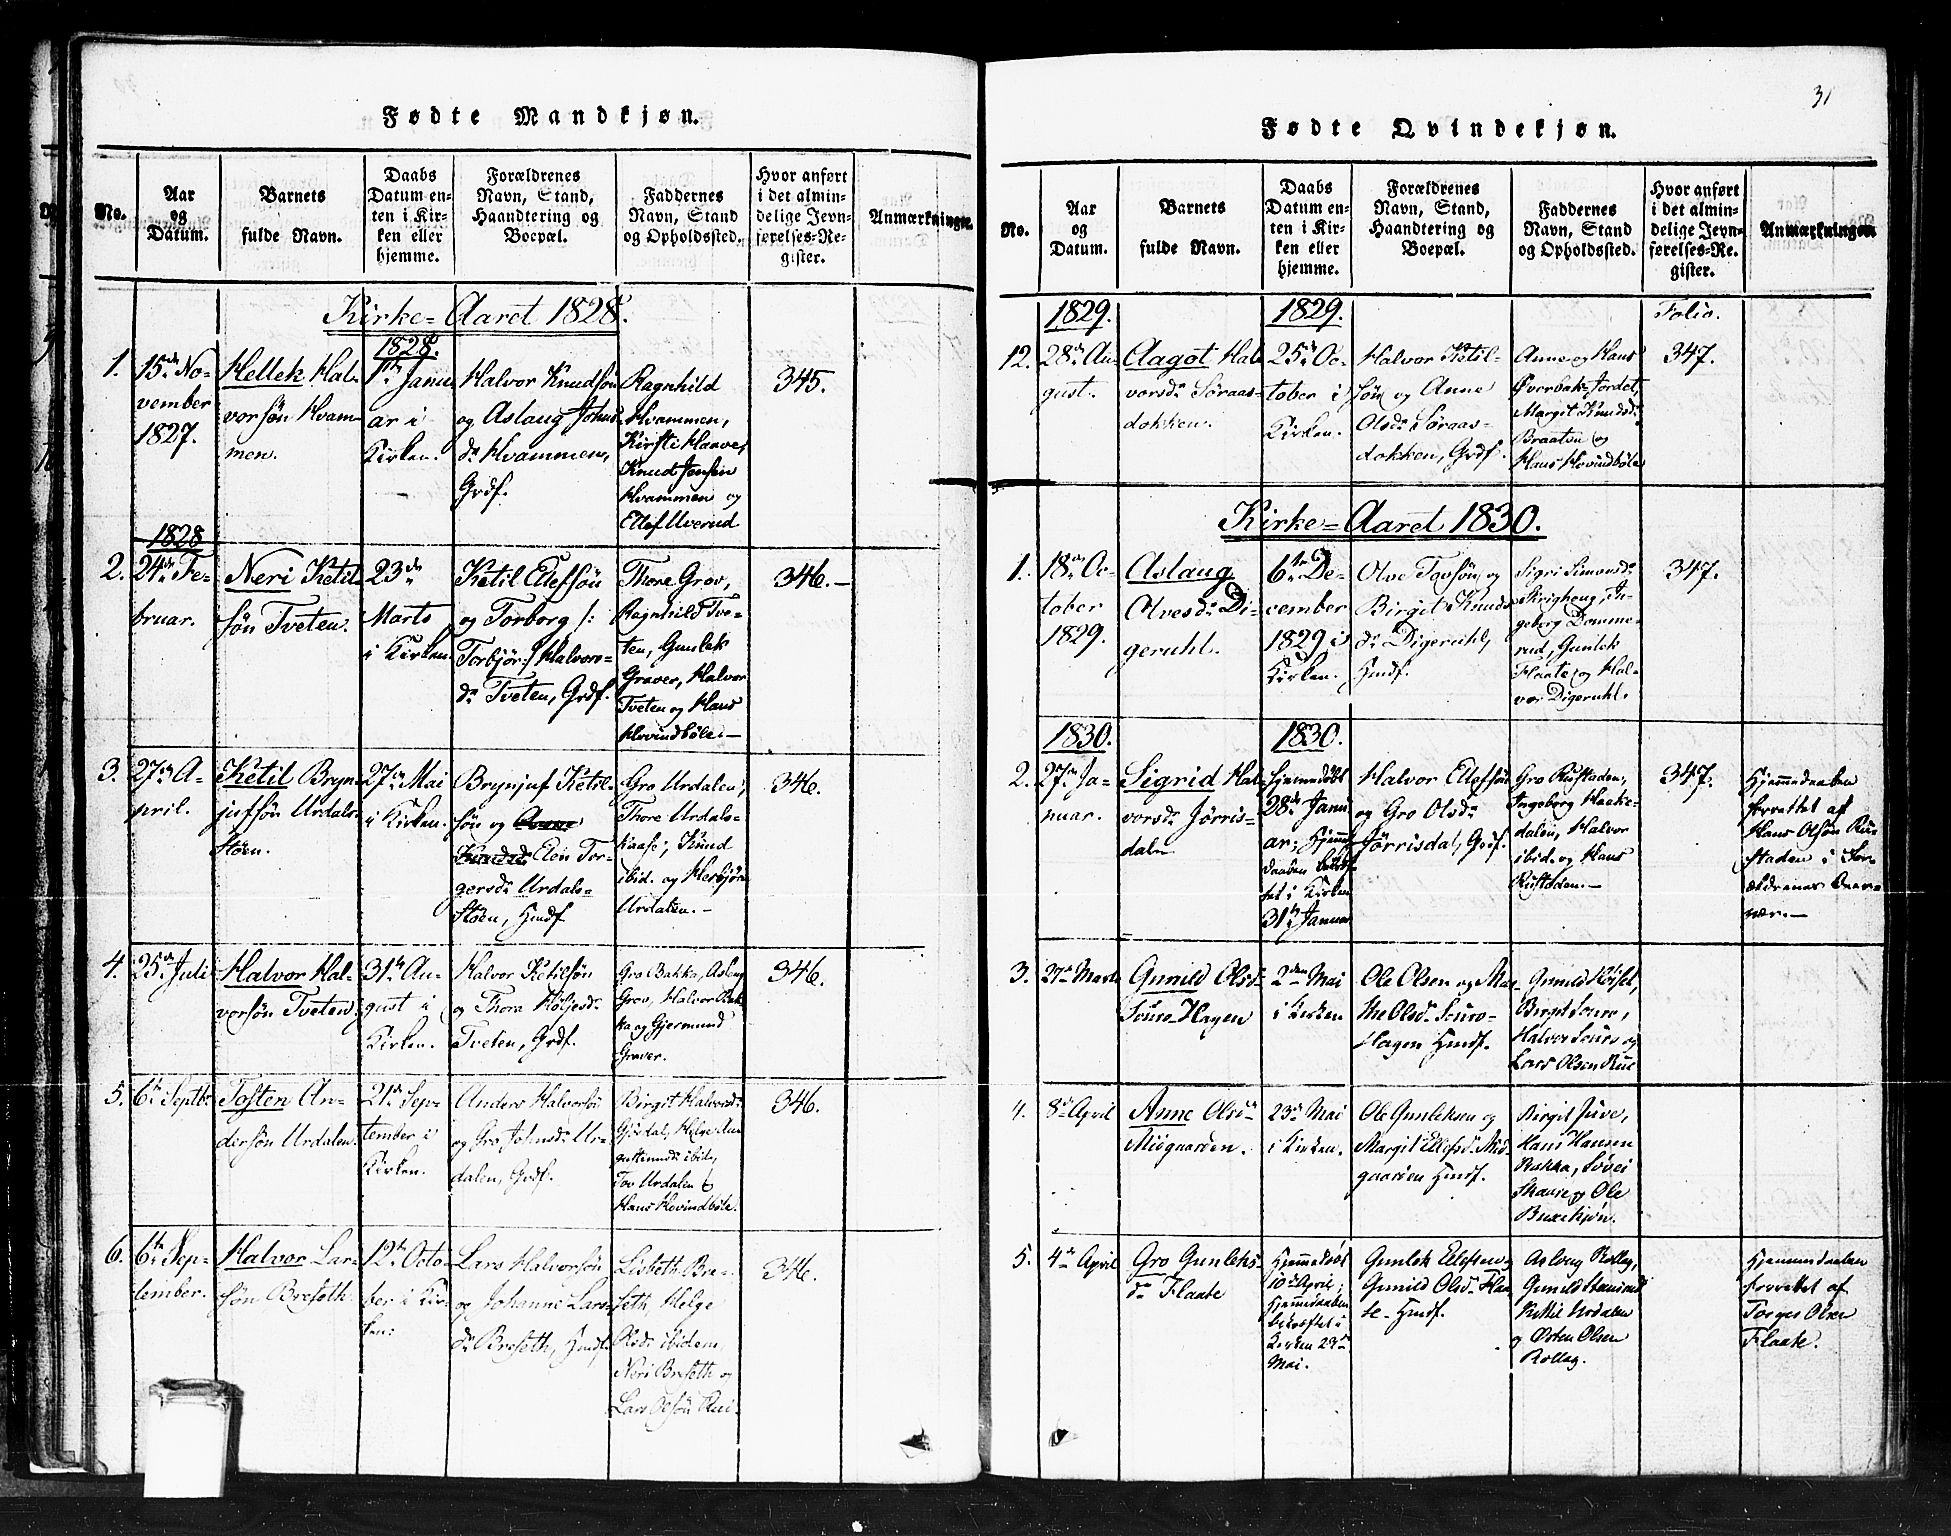 Fødte Mandkjøn.
No.
Aar
og
Datum.
Barnets
fulde Navn.
Daabs
Datum en-
ten i Kir-
ken eller
hjemme.
Forældrenes
Navn, Stand,
Haandtering og
Boepæl.
Faddernes
Navn, Stand
og Opholdssted.
Hvor anført
i det almin-
delige Jevn-
førelses-Re-
gister.
Anmærkninger.
Kirke-Aaret 1828.
1.
15de No-
vember
1827.
Hellek Hal-
vorsøn Hvam-
men.
1828.
1ste Janu-
ar i
Kirken.
Halvor Knudsøn
og Aslaug Johns
dr Hvammen,
Grdf.
Ragnhild
Hvammen,
Kirsti Haave,
Knud Jensen
Hvammen og
Ellef Uverud
345.
2.
1828
24de Fe-
bruar.
Neri Ketil-
søn Tveten.
23de
Marts
i Kirken.
Ketil Ellefsøn
og Torborg /:
Torbjør :/ Halvors-
dr Tveten, Grdf.
Thore Grov,
Ragnhild Tve-
ten, Gunlek
Graver, Halvor
Tveten og Hans
Hovindbøle.—
346.—
3.
27de A-
pril.
Ketil Bryn-
julfsøn Urdals-
Støen.
27de Mai
i Kirken.
Brynjuf Ketil-
søn og
Elen Tor-
gersdr Urdals-
Støen, Hmdf
Gro Urdalen,
Thore Urdals-
kaase, Knud
ibid. og Herbjør
Urdalen.—
346.
4.
25de Juli
Halvor Hal-
vorsøn Tveten
31te Au-
gust i
Kirken.
Halvor Ketilsøn
og Thora Høljesdr
Tveten, Grdf.
Gro Bakka, Aslaug
Grov, Halvor Bak-
ka og Gjermund
Graver.
346.
5.
6te Septbr
Tosten An-
dersøn Urdalen.
21de Sep-
tember i
Kirken.
Anders Halvorsøn
og Gro Johnsdr Ur-
dalen, Grdf.
Birgit Halvorsdr
ibid.,
Tov Urdalen og
Hans Hovindbøle.
346.
6.
6te Sep-
tember.
Halvor Lar-
søn Breseth.
12te Octo-
ber i Kir-
ken.
Lars Halvorsøn
og Johanne Lars-
dr Breseth, Hmdf.
Lisbeth Bre-
seth, Helge
Olsdr ibidem
Neri Breseth og
Lars Olsøn
346.
31
Fødte Qvindekjøn.
No.
Aar
og
Datum.
Barnets
fulde Navn.
Daabs
Datum en-
ten i Kir-
ken eller
hjemme.
Forældrenes
Navn, Stand,
Haandtering og
Boepæl.
Faddernes
Navn, Stand
og Opholdssted.
Hvor anført
i det almin-
delige Jevn-
førelses-Re-
gister.
Anmærkninger
1829.
1829.
Folio.
12.
28de Au-
gust.
Aagot Hal-
vorsdr Søraas-
dokken.
25de Oc-
tober i
Kirken.
Halvor Ketil-
søn og Anne
Olsdr Søraas-
dokken, Grdf.
Anne og Hans
Øverbak-Jordet,
Margit Knudsdr
Braaten og
Hans Hovindbøle
347.
Kirke-Aaret 1830.
1.
18de Oc-
tober
1829.
Aslaug
Olvesdr Di-
geruhl.
6te De-
cember
1829 i
Kirken.
Olve Tovsøn og
Birgit Knuds-
dr Digeruhl,
Hmdf.
Sigri Simonsdr
In-
geborg Domme-
rud, Gunlek
Flaate og Hal-
vor Digeruhl.
347.
1830.
1830.
2.
27de Ja-
nuar.
Sigrid Hal-
vorsdr Jørris-
dalen
Hjemmedøbt
28de Janu-
ar; Hjemme-
daaben bekræf-
tet i Kirken
31te Januar
Halvor Ellefsøn
og Gro Olsdr
Jørrisdal, Grdf.
Gro Rustaden,
Ingeborg Haake-
dalen, Halvor
ibid. og Hans
Rustaden.—
347.
Hjemmedaaben
forrettet af
Hans Olsøn Ru-
staden i For-
ældrenes Over-
vær.—
3.
27de Marts
Gunild Olsdr
Soure-Hagen
2den Mai
i Kirken
Ole Olsen og Mar-
the Olsdr Soure-
Hagen Hmdf.
Gunild Røiset,
Birgit Soure,
Halvor Soure og
Lars Olsen Rue
4.
8de April
Anne Olsdr
Midgaarden.
23de Mai
i Kirken.
Ole Gunleksen og
Margit Ellefsdr Mid-
gaarden Hmdf.
Birgit Juve,
Hans Hansen
Bakka,
og Ole
5.
4de April
Gro Gunleks-
dr Flaate
Hjemmedøbt
10de April;
Hjemmedaaben
bekræftet i
Kirken 23de
Mai.
Gunlek Ellefsen og
Gunild Olsdr Flaa-
te Hmdf.
Aslaug Rollag,
Gunild
Kittil Urdalen
og Østen Olsen
Rollag.
Hjemmedaaben
forrettet af
Torger Olsen
Flaate.